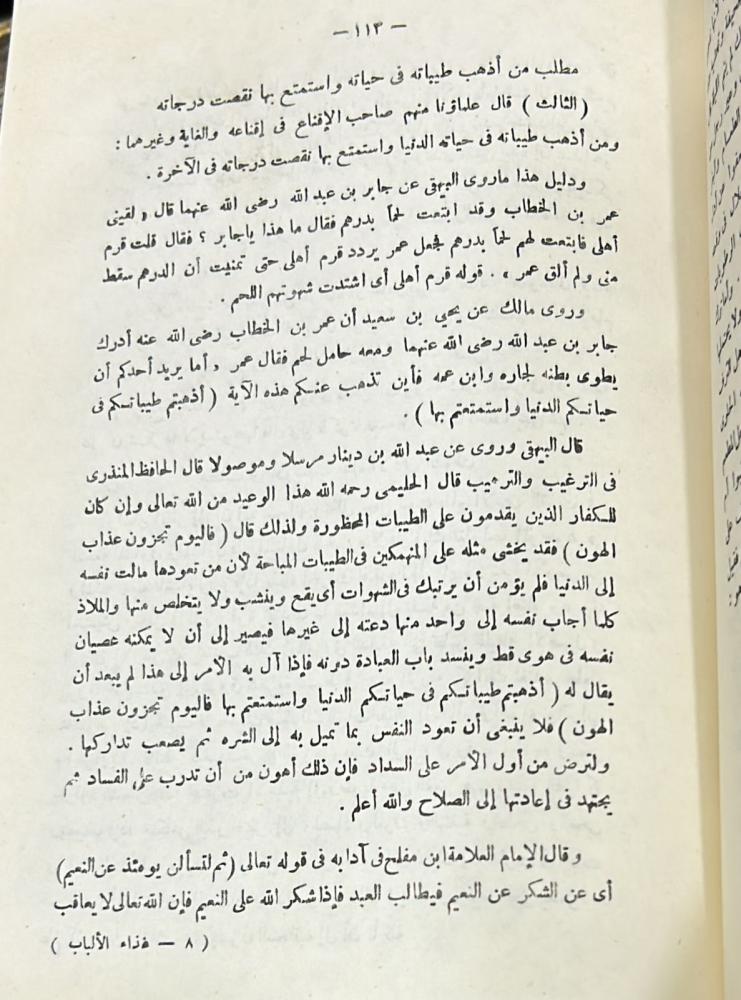 — ١١٣ —
مطلب من أذهب طيباته فى حياته واستمتع بها نقصت درجاته
( الثالث ) قال علماؤنا منهم صاحب الإقناع فى إقناعه والغاية وغيرهما :
ومن أذهب طيباته فى حياته الدنيا واستمتع بها نقصت درجاته فى الآخرة .
ودليل هذا ماروى البيهقى عن جابر بن عبد الله رضى الله عنهما قال « لقينى
عمر بن الخطاب وقد ابتعت لحما بدرهم فقال ما هذا ياجابر ؟ فقال قلت قرم
أهلى فابتعت لهم لحما بدرهم فجعل عمر يردد قرم أهلى حتى تمنيت أن الدرهم سقط
منى ولم ألق عمر » . قوله قرم أهلى أى اشتدت شهوتهم اللحم .
وروى مالك عن يحيى بن سعيد أن عمر بن الخطاب رضى الله عنه أدرك
جابر بن عبد الله رضى الله عنهما ومعه حامل لحم فقال عمر « أما يريد أحدكم أن
يطوى بطنه لجاره وابن عمه فأين تذهب عنكم هذه الآية ( أذهبتم طيباتكم فى
حياتكم الدنيا واستمتعتم بها ) .
قال البيهقى وروى عن عبد الله بن دينار مرسلا وموصولا قال الحافظ المنذرى
فى الترغيب والترهيب قال الحليمى رحمه الله هذا الوعيد من الله تعالى وإن كان
للكفار الذين يقدمون على الطيبات المحظورة ولذلك قال ( فاليوم تجزون عذاب
الهون ) فقد يخشى مثله على المنهمكين فى الطيبات المباحة لأن من تعودها مالت نفسه
إلى الدنيا فلم يؤمن أن يرتبك فى الشهوات أى يقع وينشب ولا يتخلص منها والملاذ
كلما أجاب نفسه إلى واحد منها دعته إلى غيرها فيصير إلى أن لا يمكنه عصيان
نفسه فى هوى قط وينسد باب العبادة دونه فإذا آل به الأمر إلى هذا لم يبعد أن
يقال له ( أذهبتم طيباتكم فى حياتكم الدنيا واستمتعتم بها فاليوم تجزون عذاب
الهون ) فلا ينبغى أن تعود النفس بما تميل به إلى الشره ثم يصعب تداركها .
ولترض من أول الأمر على السداد فإن ذلك أهون من أن تدرب على الفساد ثم
يجتهد فى إعادتها إلى الصلاح والله أعلم .
وقال الإمام العلامة ابن مفلح فى آدابه فى قوله تعالى (ثم لتسألن يومئذ عن النعيم)
أى عن الشكر عن النعيم فيطالب العبد فإذا شكر الله على النعيم فإن الله تعالى لا يعاقب
( ٨ — غذاء الألباب )